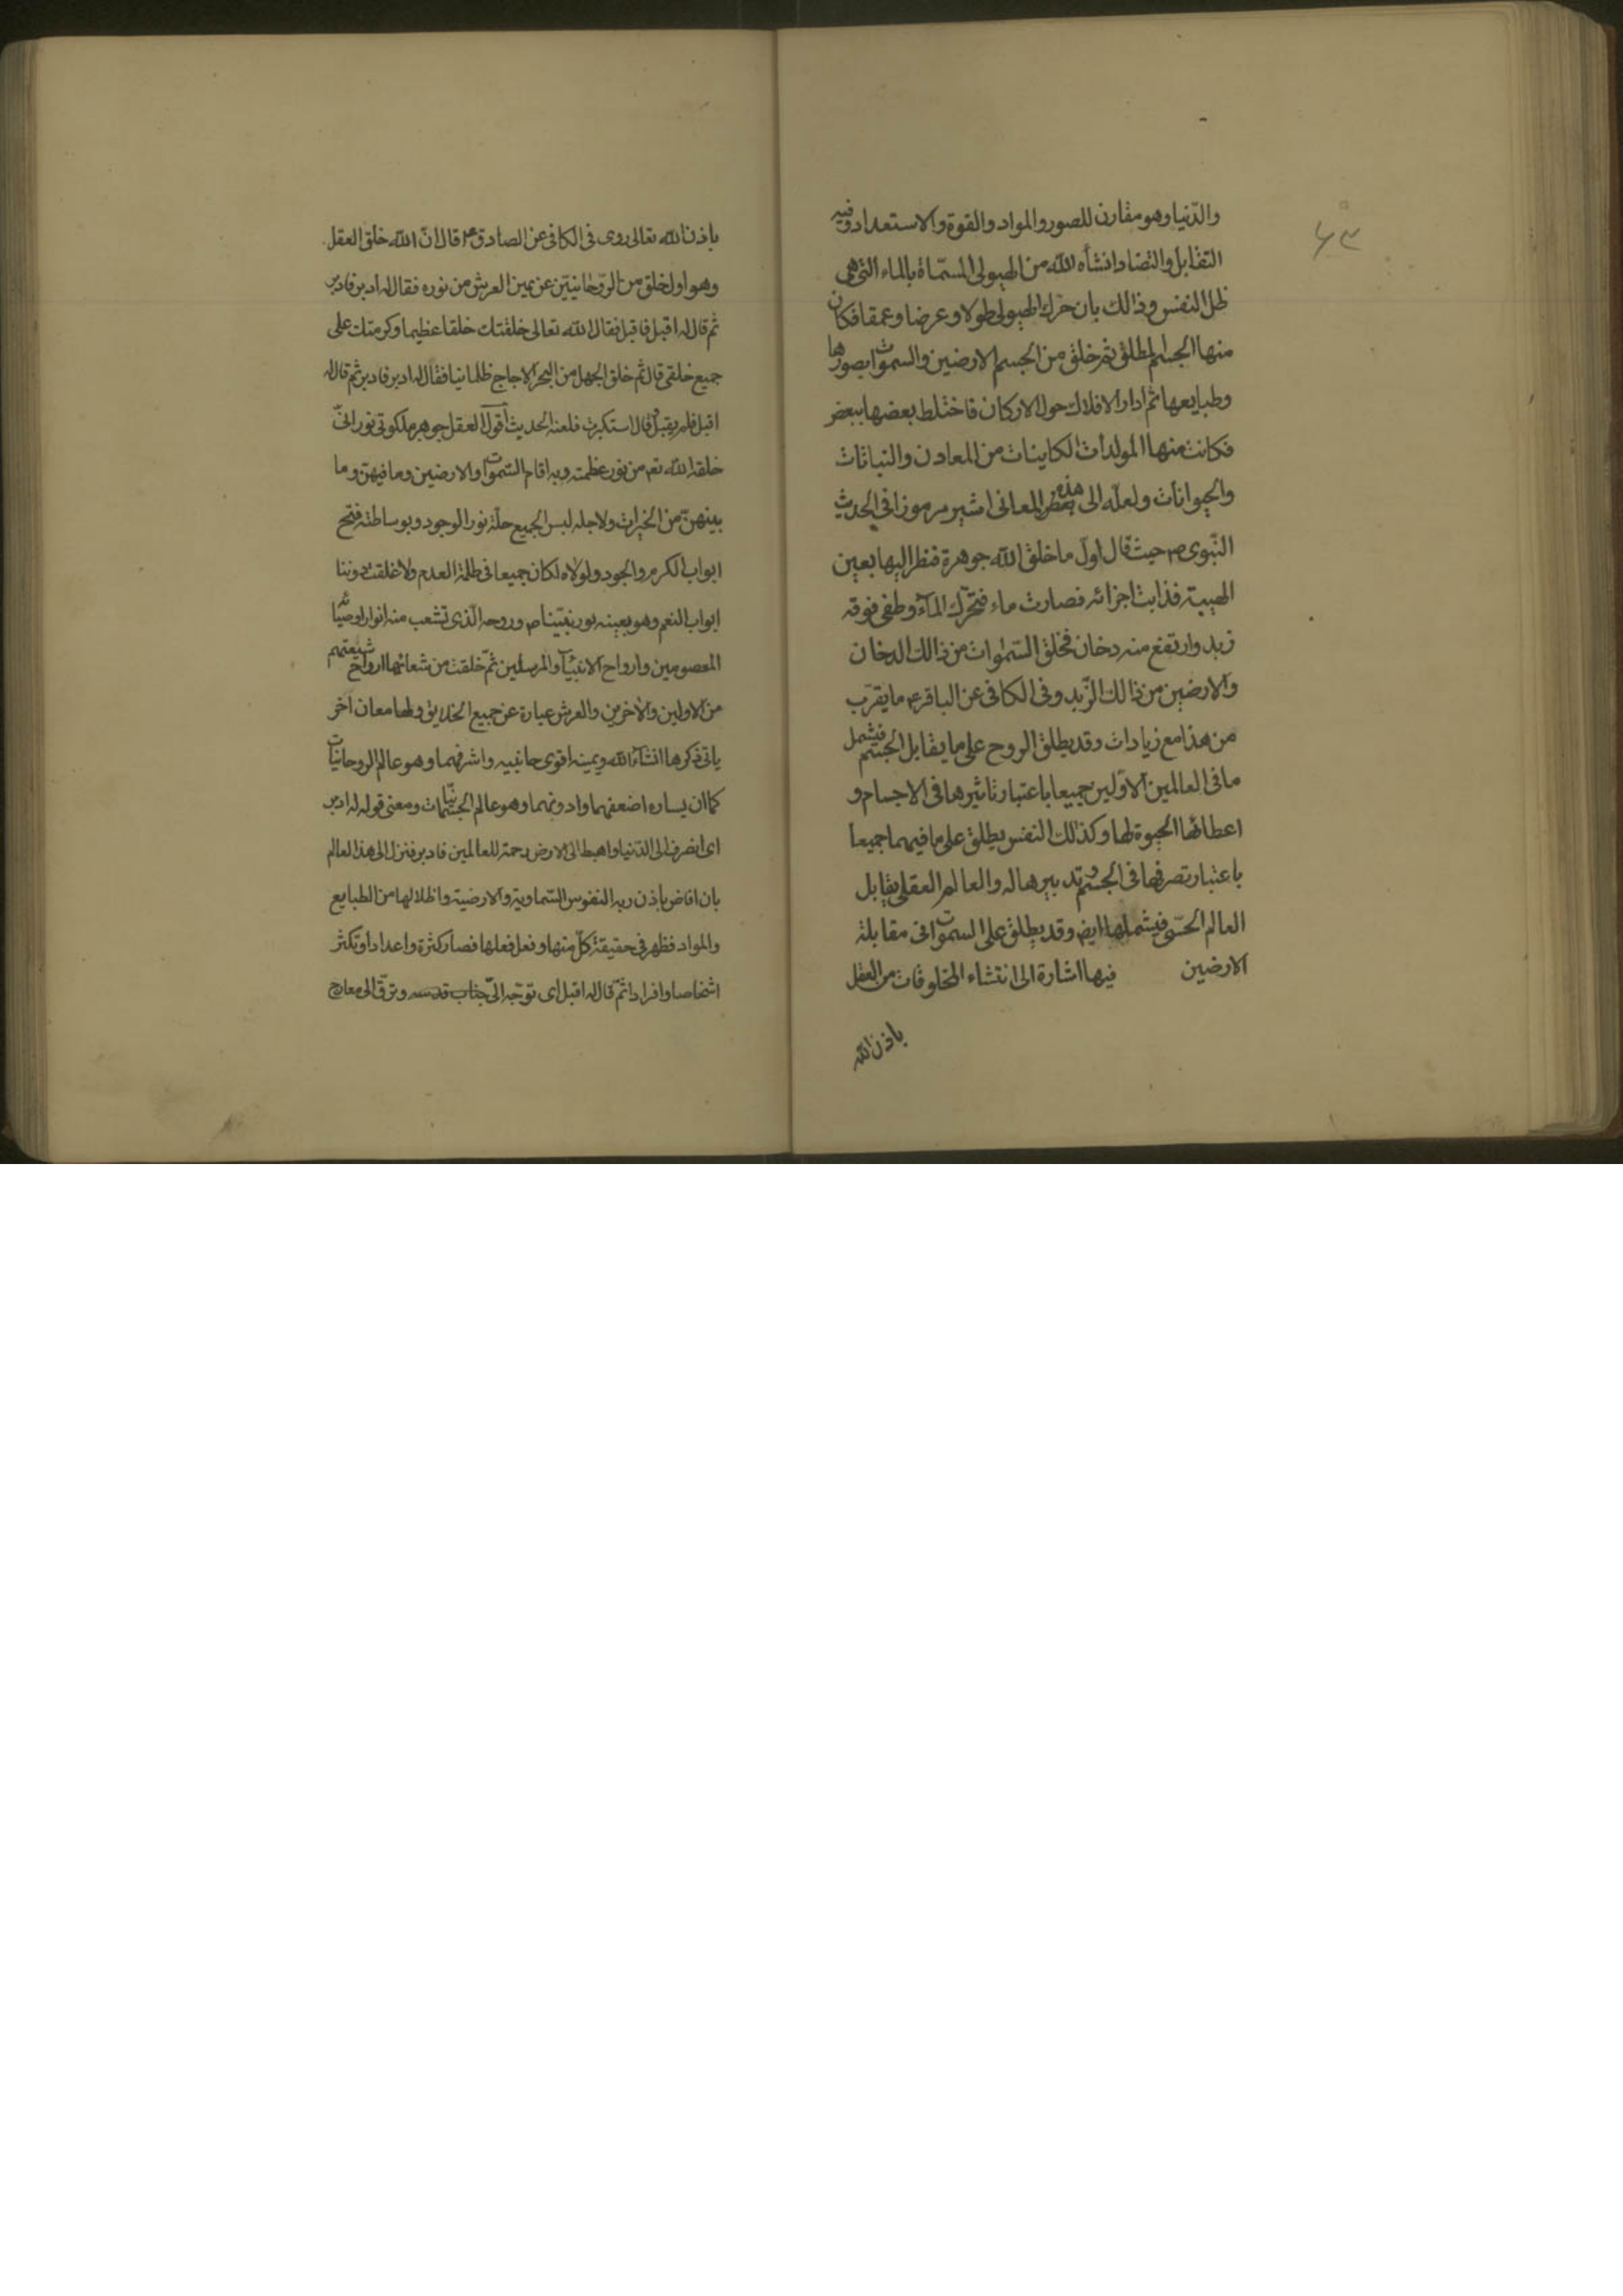 ۶۳
والدّنيا وهو مقارن للصور والمواد والقوة والاستعداد وفيه
التقابل والتضاد انشأه الله من الهيولى المسمّاة بالماء التى هى
ظل النفس وذالك بان حرك الهيولى طولا وعرضا وعمقا فكان
منها الجسم المطلق ثم خلق من الجسم الارضين والسموات بصورها
وطبايعها ثم ادار الافلاك حول الاركان فاختلط بعضها ببعض
فكانت منها المولدات الكاينات من المعادن والنباتات
والحيوانات ولعلّه الى هذه المعانى اشير مرموزا فى الحديث
النّبوى ص حيث قال اول ما خلق الله جوهرة فنظر اليها بعين
الهيبة فذابت اجزائه فصارت ماء فتحرّك الماء وطفى فوقه
زبد وارتفع منه دخان فخلق السّموات من ذالك الدخان
والارضين من ذالك الزّبد وفى الكافى عن الباقر ع ما يقرب
من هذا مع زيادات وقد يطلق الروح على ما يقابل الجسم فيشمل
ما فى العالمين الاوّلين جميعا باعتبار تاثيرها فى الاجسام و
اعطائها الحيوة لها وكذلك النفس يطلق على ما فيهما جميعا
باعتبار تصرفها فى الجسم و تدبيرها له والعالم العقلى يقابل
العالم الحسّى فيشملها ايض وقد يطلق على السموات فى مقابلة
الارضين فيها اشارة الى انتشاء المخلوقات من العقل
باذن الله
باذن الله تعالى روى فى الكافى عن الصادق ع قال انّ الله خلق العقل
وهو اول خلق من الرّوحانيّين عن يمين العرش من نوره فقال له ادبر فادبر
ثم قال له اقبل فاقبل فقال الله تعالى خلقتك خلقا عظيما وكرمتك على
جميع خلقى قال ثم خلق الجهل من البحر الاجاج ظلمانيا فقال له ادبر فادبر ثم قال له
اقبل فلم يقبل فقال استكبرت فلعنه الحديث اقول العقل جوهر ملكوتى نورانىّ
خلقه الله تعم من نور عظمته وبه اقام السّموات والارضين وما فيهن وما
بينهنّ من الخيرات ولاجله لبس الجميع حلّة نور الوجود وبوساطته فتح
ابواب الكرم والجود ولولاه لكان جميعا فى ظلمة العدم ولاغلقت دوننا
ابواب النعم وهو بعينه نور نبيّنا ص وروحه الّذى تشعب منه انوار اوصيائه
المعصومين وارواح الانبيآء والمرسلين ثمّ خلقت من شعاعها ارواح شيعتهم
من الاولين والآخرين والعرش عبارة عن جميع الخلايق ولها معان اخر
ياتى ذكرها انشآء الله ويمينه اقوى جانبيه واشرفهما وهو عالم الروحانيّات
كما ان يساره اضعفهما وادونهما وهو عالم الجسمانيّات ومعنى قوله له ادبر
اى انصرف الى الدّنيا واهبط الى الارض رحمة للعالمين فادبر فنزل الى هذا العالم
بان افاض باذن ربه النفوس السّماوية والارضية واظلالها من الطبايع
والمواد فظهر فى حقيقة كلّ منها وفعل فعلها فصار كثرة واعدادا وتكثر
اشخاصا وافرادا ثمّ قال له اقبل اى توجّه الىّ جناب قدسه وترقّ الى معارج